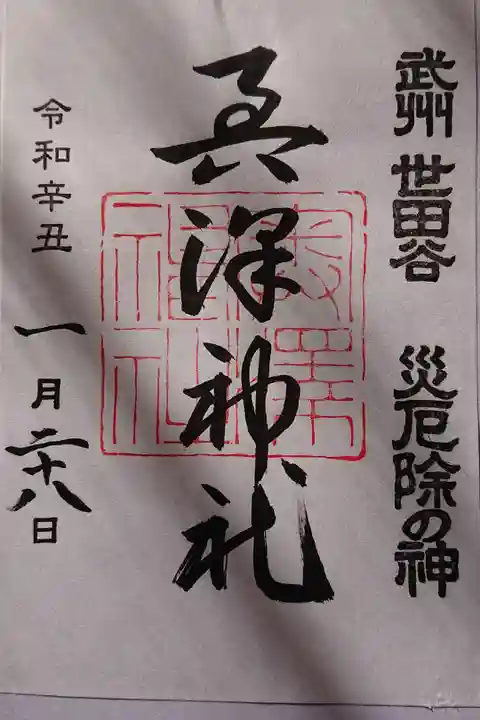 武州 世田谷 災厄除の神
奥澤神社
令和辛丑 一月二十八日
奥澤
神社